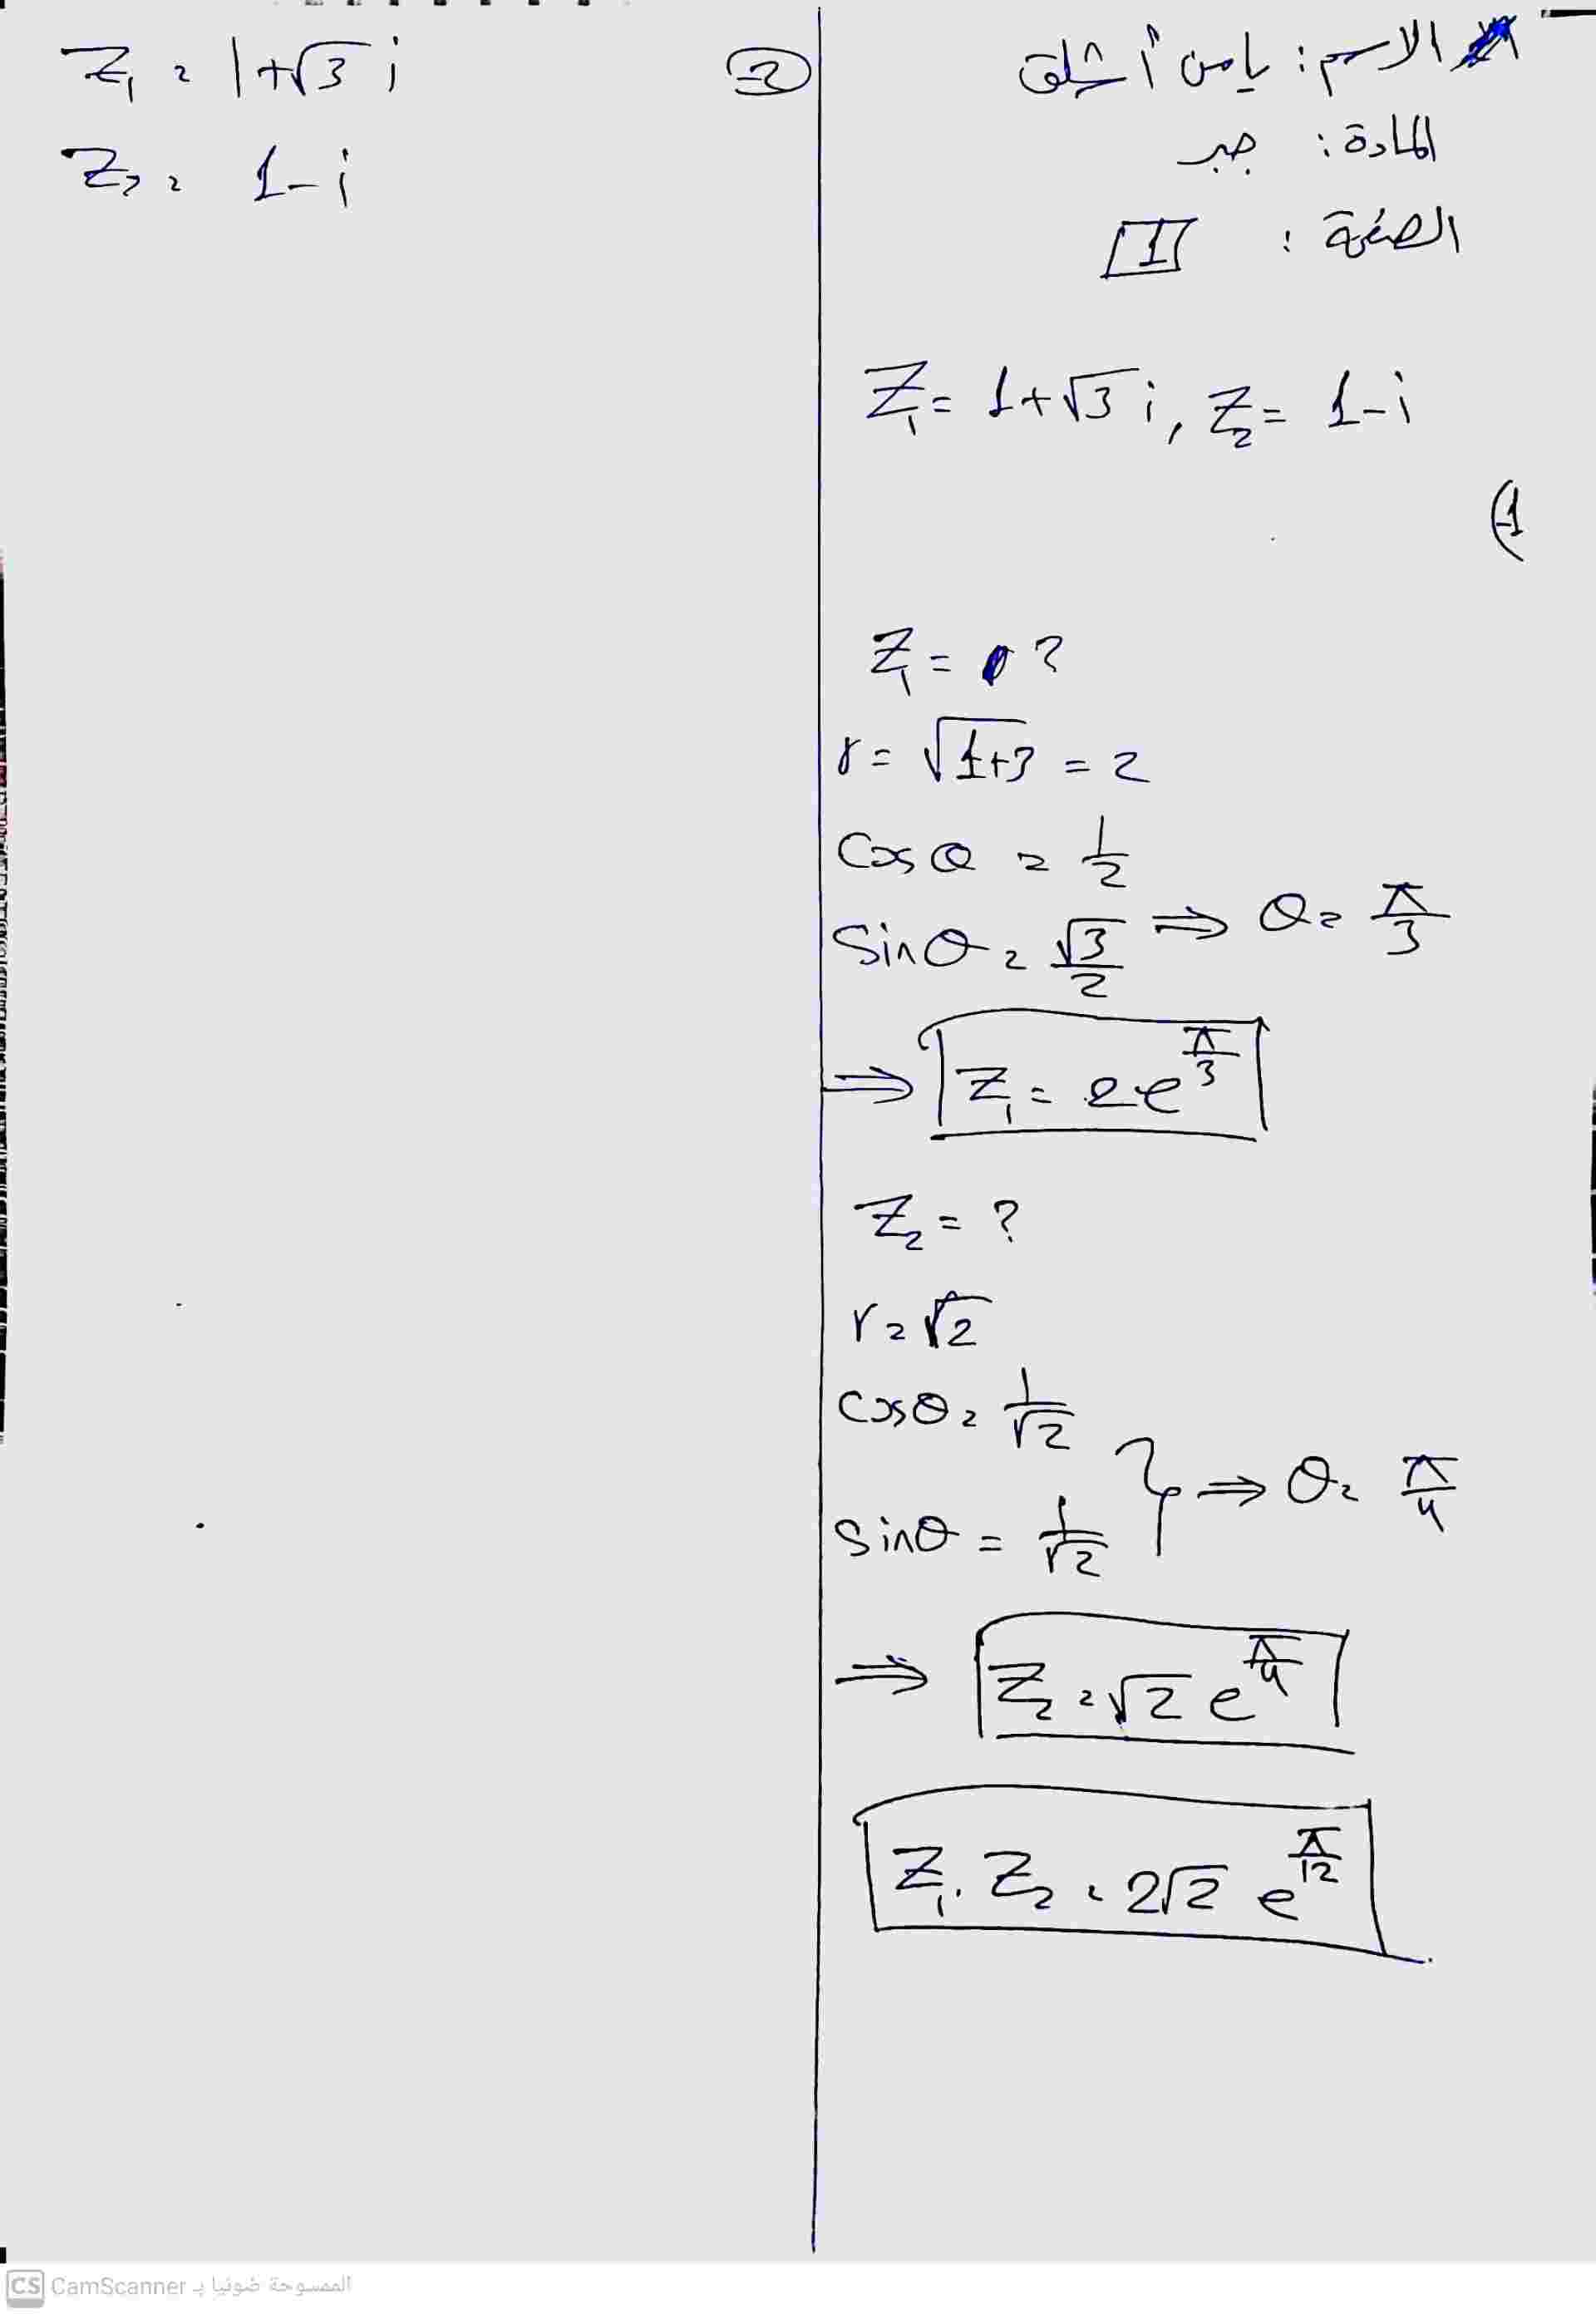 الاسم:
المادة: جبر
الصفحة: 1
Z₁ = 1+√3 i, Z₂ = 1-i
(1-
Z₁ = ?
r = √1+3 = 2
Cosθ = 1/2
Sinθ = √3/2 ⇒ θ = π/3
⇒ Z₁ = 2e^π/3
Z₂ = ?
r = √2
cosθ = 1/√2
sinθ = 1/√2 } ⇒ θ = π/4
⇒ Z₂ = √2 e^π/4
Z₁. Z₂ = 2√2 e^π/12
-2
Z₁ = 1+√3 i
Z₂ = 1-i
CS CamScanner الممسوحة ضوئيا بـ